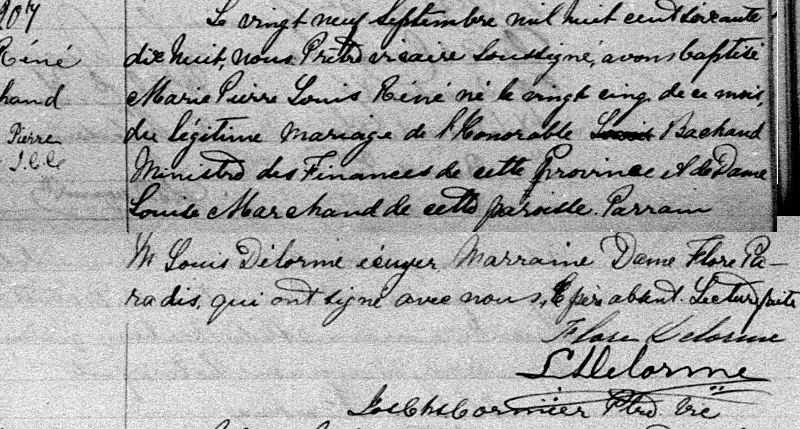 207
Réné
hand
Pierre
Le vingt neuf Septembre mil huit cent soixante
dix huit, nous Prêtre vicaire soussigné, avons baptisé
Marie Pierre Louis Réné né le vingt cinq de ce mois,
du légitime mariage de l'Honorable Louis Bachand
Ministre des Finances de cette Province et de Dame
Louise Marchand de cette paroisse. Parrain
M Louis Délorme écuyer Marraine Dame Flore Pa-
radis, qui ont signé avec nous, le père absent. Lecture faite
Flore Delorme
L Delorme
Jos Chs Cormier Ptre Vre